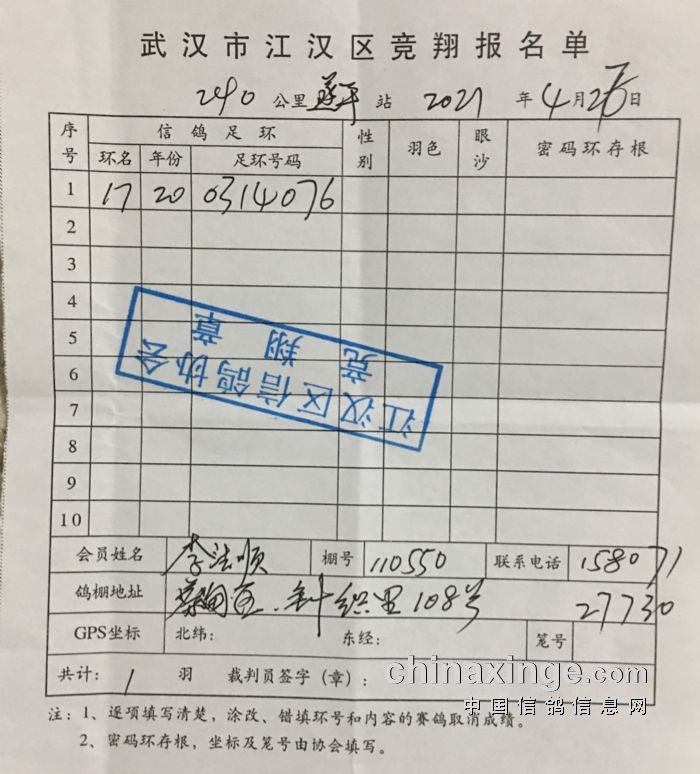 武汉市江汉区竞翔报名单
290 公里 遂平 站 2021 年 4 月 日
序号 信鸽足环 性别 羽色 眼沙 密码环存根
环名 年份 足环号码
1 17 20 0314076
2
3
4
5
6
7
8
9
10
江汉区信鸽协会
竞翔章
会员姓名 李法顺 棚号 110550 联系电话 158071
27730
鸽棚地址 针织里108号
GPS坐标 北纬： 东经： 笼号
共计： 1 羽 裁判员签字（章）：
chinaxinge.com
中国信鸽信息网
注：1、逐项填写清楚，涂改、错填环号和内容的赛鸽取消成绩。
2、密码环存根，坐标及笼号由协会填写。